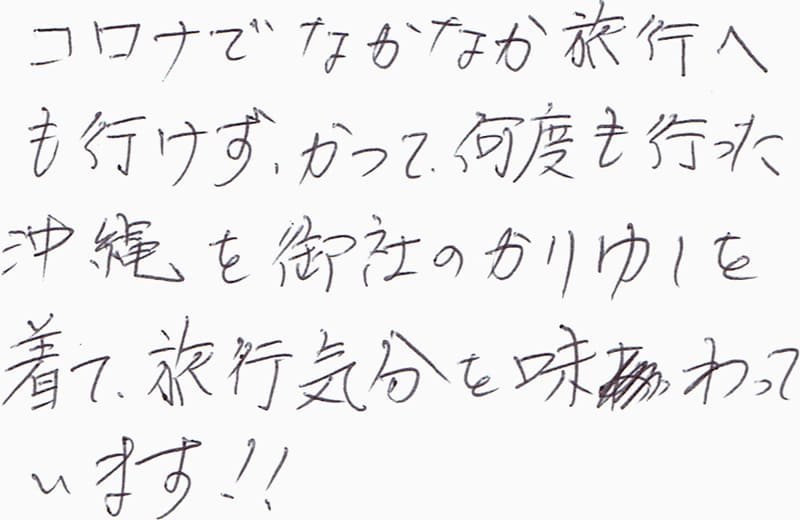 コロナでなかなか旅行へ
も行けず、かつて、何度も行った
沖縄を御社のかりゆしを
着て、旅行気分を味わって
います!!